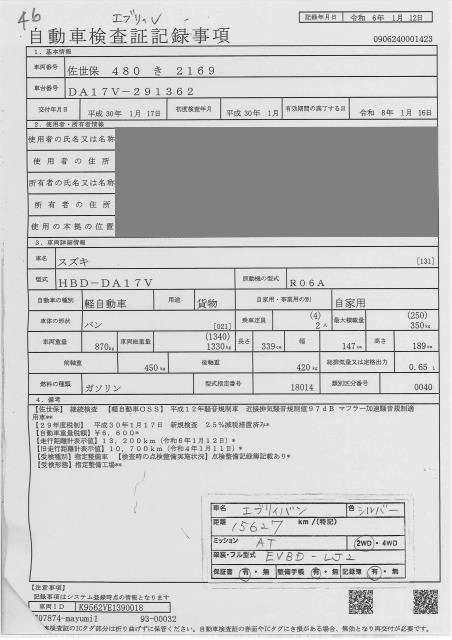 46
エブリィV
記録年月日 令和 6年 1月 12日
自動車検査証記録事項
0906240001423
1. 基本情報
車両番号 佐世保 480 き 2169
車台番号 DA17V-291362
交付年月日 平成 30年 1月 17日 初度検査年月 平成 30年 1月 有効期間の満了する日 令和 8年 1月 16日
2. 使用者・所有者情報
使用者の氏名又は名称
使用者の住所
所有者の氏名又は名称
所有者の住所
使用の本拠の位置
3. 車両詳細情報
車名 スズキ [131]
型式 HBD-DA17V 原動機の型式 R06A
自動車の種別 軽自動車 用途 貨物 自家用・事業用の別 自家用
車体の形状 バン [021] 乗車定員 (4) 2人 最大積載量 (250) 350kg
車両重量 870kg 車両総重量 (1340) 1330kg 長さ 339cm 幅 147cm 高さ 189cm
前軸重 450kg 後軸重 420kg 総排気量又は定格出力 0.65 L
燃料の種類 ガソリン 型式指定番号 18014 類別区分番号 0040
4. 備考
【佐世保】 継続検査 【軽自動車OSS】 平成12年騒音規制車 近接排気騒音規制値97dB マフラー加速騒音規制適
用車**
【29年度税制】 平成30年1月17日 新規検査 25%減税措置済み*
【自動車重量税額】¥6,600*
【走行距離計表示値】13,200km(令和6年1月12日)*
【旧走行距離計表示値】10,700km(令和4年1月11日)*
【受検種別】指定整備車 【検査時の点検整備実施状況】点検整備記録簿記載あり*
【受検形態】指定整備工場**
車名 エブリィバン 色 シルバー
距離 15627 km/(特記)
ミッション AT 2WD・4WD
架装・フル型式 EVBD-LJ2
保証書 有・無 整備手帳 有・無 記録簿 有・無
【注意事項】
記録事項はシステム登録時点の情報となります
車両ID K9562VE1390018
707874-mayumi1 93-00032
車検査証のICタグ部分は折り曲げずに保管ください。自動車検査証の券面やICタグにき損がある場合、無効となり再交付が必要です。